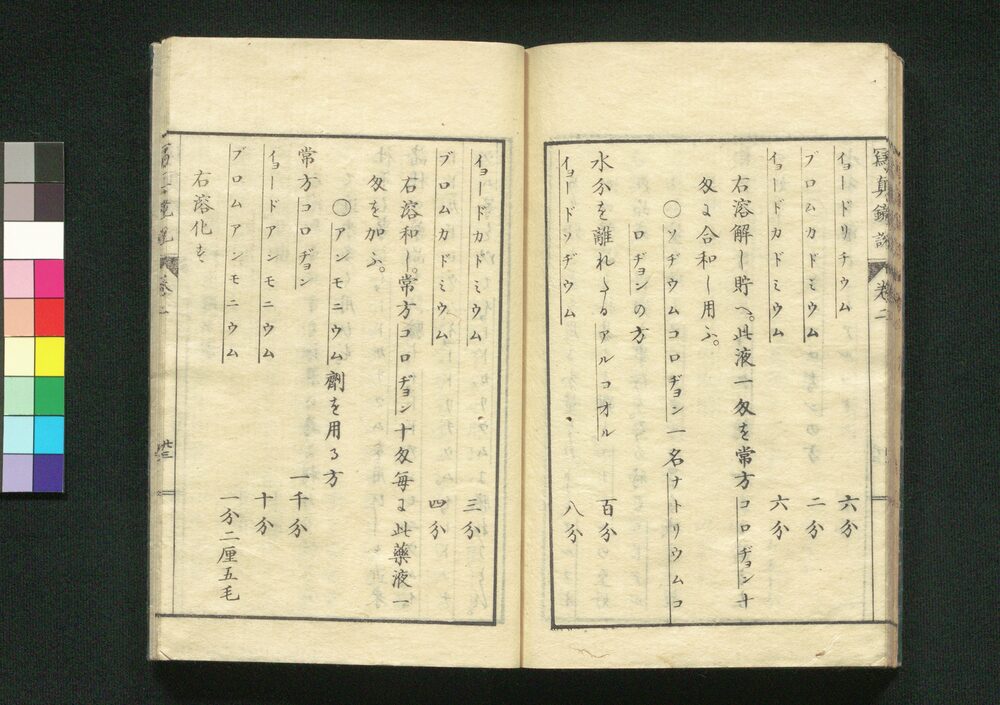 寫眞鏡説
卷二
イヨードリチウム 六分
ブロムカドミウム 二分
イヨードカドミウム 六分
右溶解し貯へ。此液一匁を常方コロヂョン十
匁に合和し用ふ。
〇ソヂウムコロヂョン一名ナトリウムコ
ロヂョンの方
水分を離れたるアルコオル 百分
イヨードソヂウム 八分
イヨードカドミウム 三分
ブロムカドミウム 四分
右溶和し。常方コロヂョン十匁毎に此藥液一
匁を加ふ。
〇アンモニウム劑を用る方
常方コロヂョン 一千分
イヨードアンモニウム 十分
ブロムアンモニウム 一分二厘五毛
右溶化す